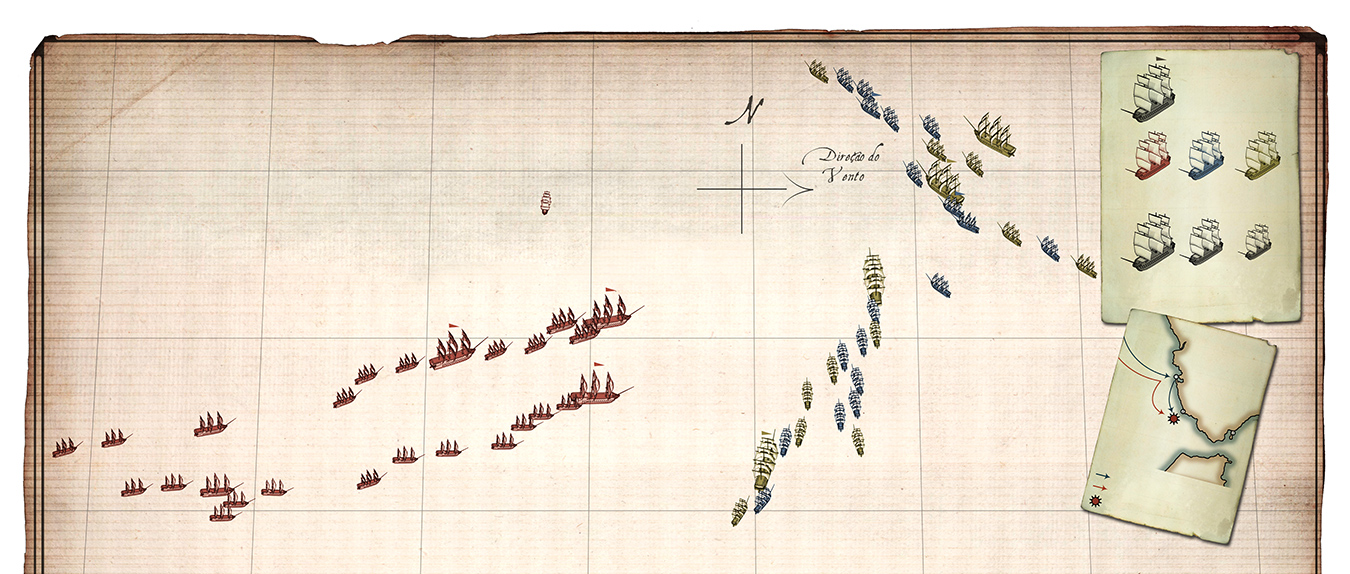 N
Direção do
Vento